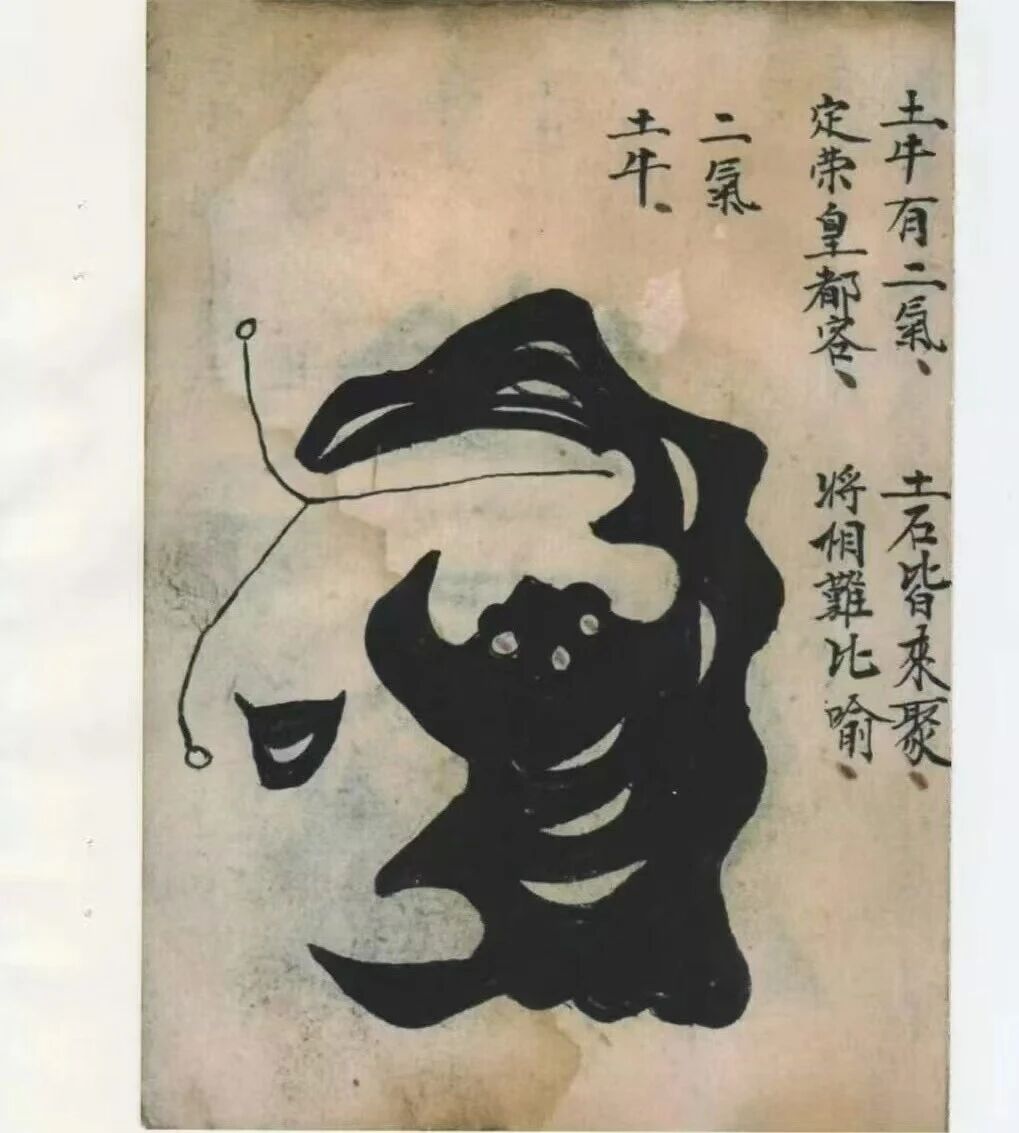 土牛有二氣、
土石皆來聚、
定荣皇都客、
將相難比喻、
二氣
土牛、